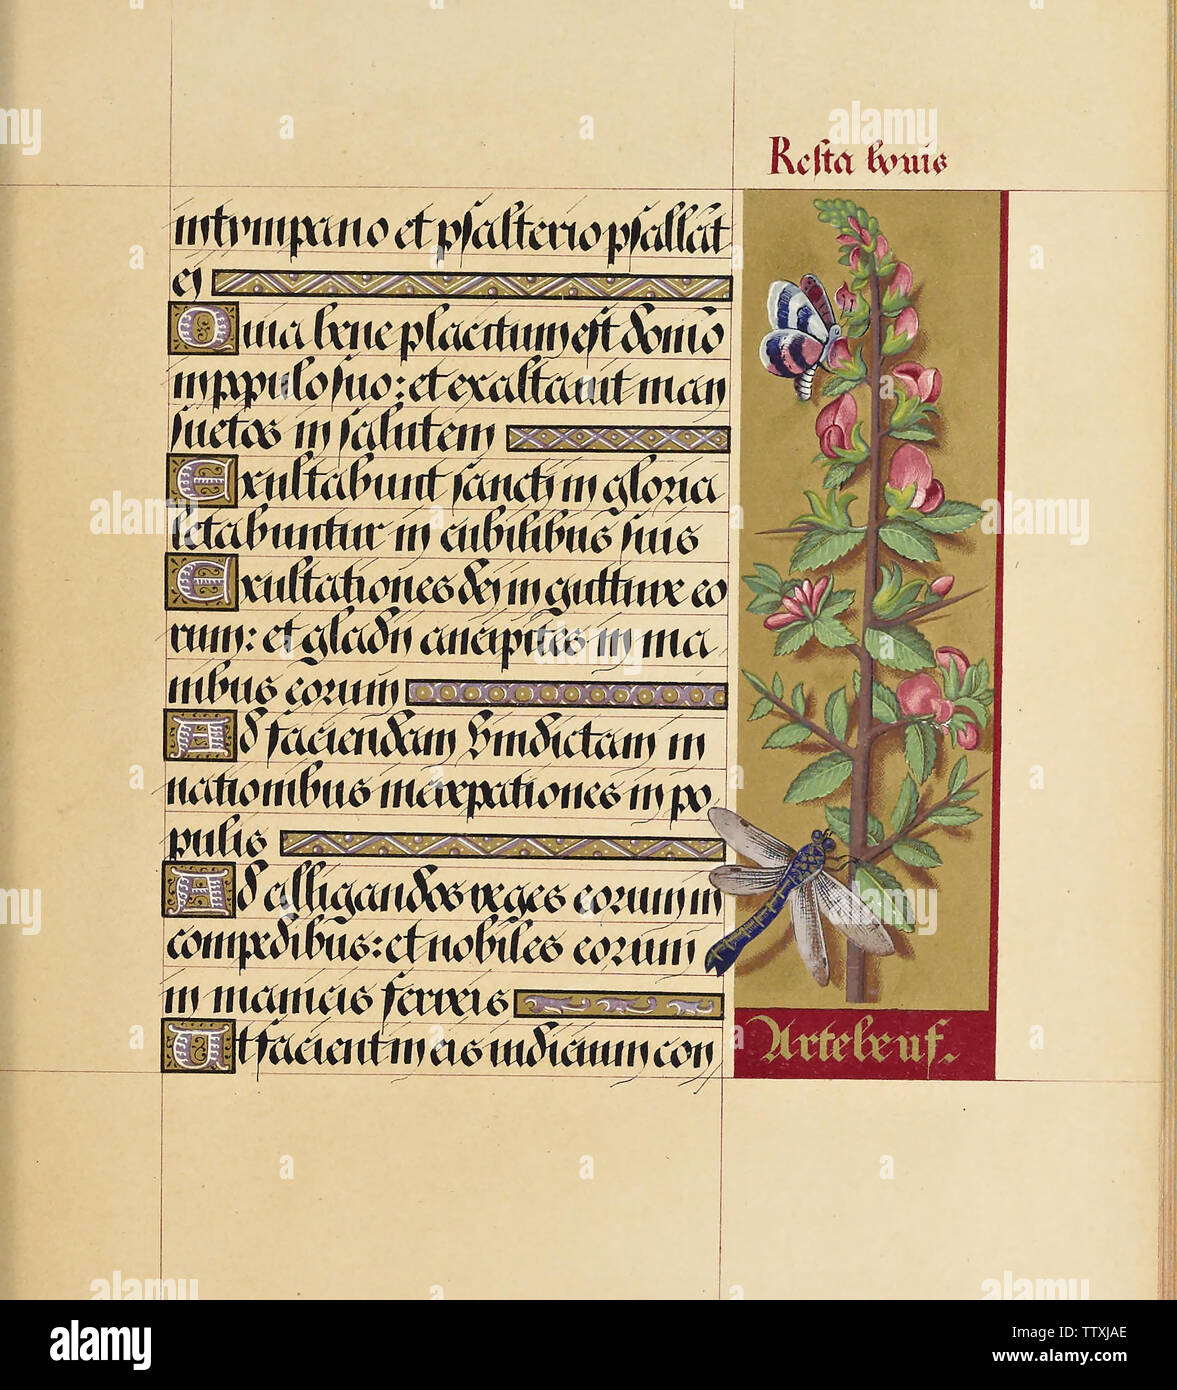 Resta bouis
in tympano et psalterio psallāt
ei
Quia bene placitum est domīo
in populo suo: et exaltauit man
suetos in salutem
Exultabunt sancti in gloria
letabuntur in cubilibus suis
Exultationes dei in gutture eo
rum: et gladii ancipites in ma
nibus eorum
Ad faciendam vindictam in
nationibus increpationes in po
pulis
Ad alligandos reges eorum in
compedibus: et nobiles eorum
in manicis ferreis
Ut faciant in eis iudicium con
Artebeuf.
alamy
Image ID: TTXJAE
www.alamy.com